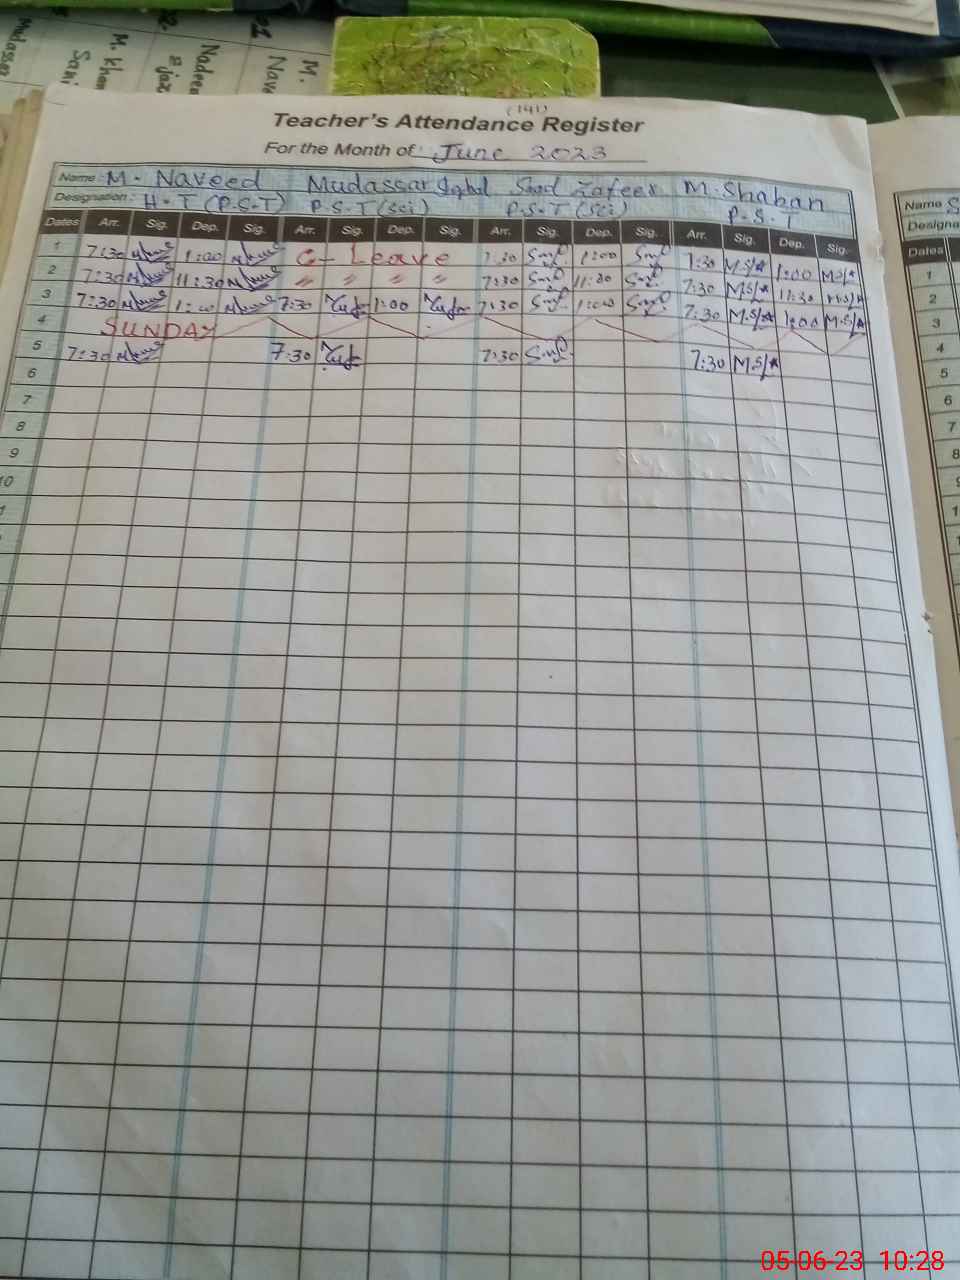 M.
Nave
Nadee
M. Khan
(141)
Teacher's Attendance Register
For the Month of June 2023
Name : M. Naveed Mudassar Iqbal Saad Zafeer M. Shaban
Designation : H.T (P.S.T) P.S.T (Sci) P.S.T (Sci) P.S.T
Dates Arr. Sig. Dep. Sig. Arr. Sig. Dep. Sig. Arr. Sig. Dep. Sig. Arr. Sig. Dep. Sig.
1 7:30 1:00 C- Leave 7:30 1:00 7:30 M.S/A 1:00 M.S/A
2 7:30 11:30 〃 〃 〃 〃 7:30 11:30 7:30 M.S/A 11:30 M.S/A
3 7:30 1:00 7:30 1:00 7:30 1:00 7:30 M.S/A 1:00 M.S/A
4 SUNDAY
5 7:30 7:30 7:30 7:30 M.S/A
6
7
8
9
10
Name
Designa
Dates
1
2
3
4
5
6
7
8
05-06-23 10:28